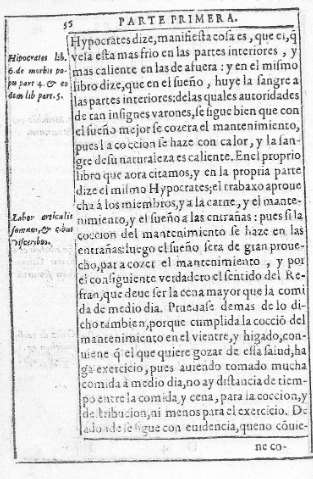 56
PARTE PRIMERA.
Hypocrates dize, manifiesta cosa es, que el, q̃
vela esta mas frio en las partes interiores , y
mas caliente en las de afuera : y en el mismo
libro dize, que en el sueño , huye la sangre a
las partes interiores: de las quales autoridades
de tan insignes varones, se sigue bien que con
el sueño mejor se cozera el mantenimiento,
pues la coccion se haze con calor, y la san-
gre de su naturaleza es caliente. En el proprio
libro que aora citamos, y en la propria parte
dize el mismo Hypocrates; el trabaxo aproue
cha á los miembros, y a la carne, y el mante-
nimiento, y el sueño a las entrañas : pues si la
coccion del mantenimiento se haze en las
entrañas: luego el sueño sera de gran proue-
cho, para cozer el mantenimiento , y por
el consiguiente verdadero el sentido del Re-
fran, que deue ser la cena mayor que la comi
da de medio dia. Prueuase demas de lo di-
cho tambien, porque cumplida la cocció del
mantenimiento en el vientre, y higado, con-
uiene q̃ el que quiere gozar de essa salud, ha
ga exercicio, pues auiendo tomado mucha
comida á medio dia, no ay distancia de tiem-
po entre la comida, y cena, para la coccion, y
distribucion, ni menos para el exercicio. De
adonde se sigue con euidencia, que no cõuie-
ne co-
Hipocrates lib.
6. de morbis po-
pu part 4. & eo
dem lib part. 5.
Labor articulis
somnus, & cibus
visceribus.